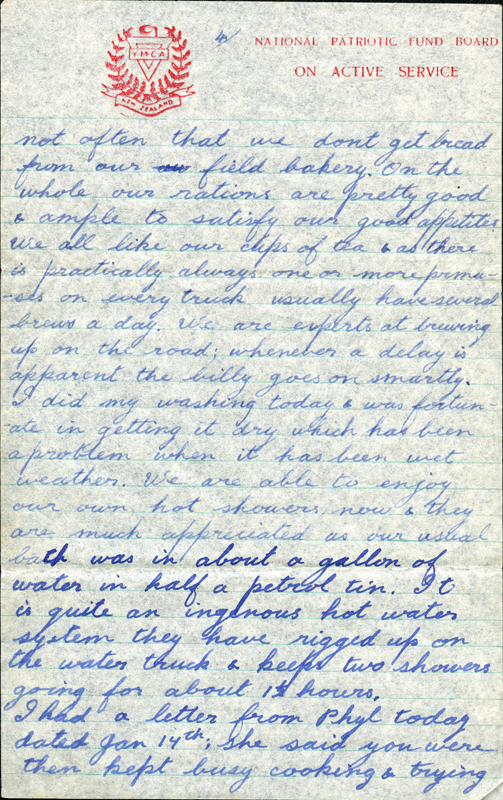 4/
NATIONAL PATRIOTIC FUND BOARD
ON ACTIVE SERVICE
YMCA
NEW ZEALAND
not often that we dont get bread
from our field bakery. On the
whole our rations are pretty good
& ample to satisfy our good appetites
We all like our cups of tea & as there
is practically always one or more prima-
-ses on every truck usually have several
brews a day. We are experts at brewing
up on the road; whenever a delay is
apparent the billy goes on smartly.
I did my washing today & was fortun-
-ate in getting it dry which has been
a problem when it has been wet
weather. We are able to enjoy
our own hot showers now & they
are much appreciated as our usual
bath was in about a gallon of
water in half a petrol tin. It
is quite an ingenous hot water
system they have rigged up on
the water truck & keeps two showers
going for about 1½ hours.
I had a letter from Phyl today
dated Jan 14th; she said you were
then kept busy cooking & trying